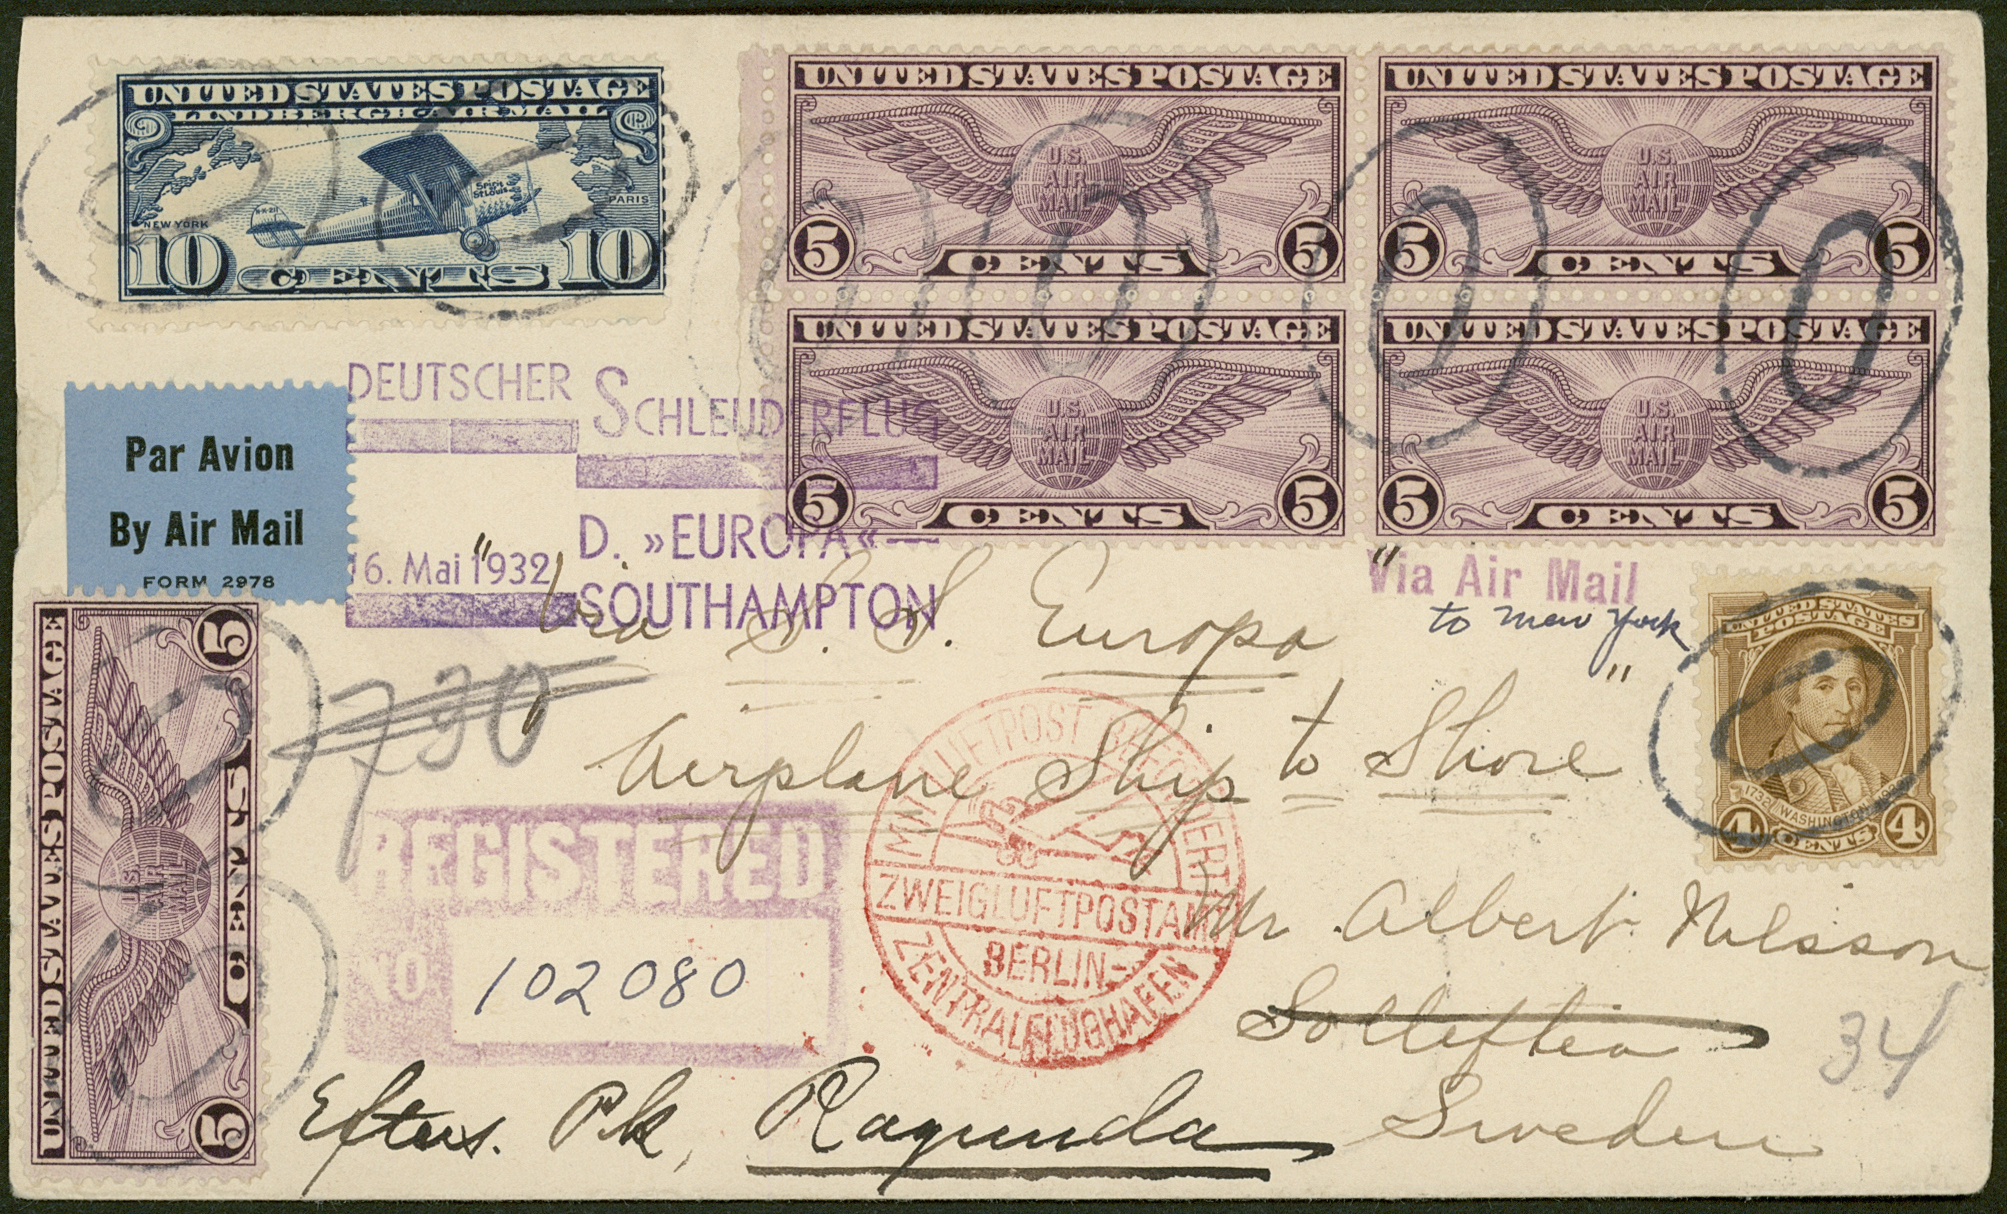 UNITED STATES POSTAGE
LINDBERGH AIR MAIL
Spirit
St Louis
N-X-211
NEW YORK
PARIS
10 CENTS 10
UNITED STATES POSTAGE
U.S.
AIR
MAIL
5 CENTS 5
UNITED STATES POSTAGE
U.S.
AIR
MAIL
5 CENTS 5
UNITED STATES POSTAGE
U.S.
AIR
MAIL
5 CENTS 5
UNITED STATES POSTAGE
U.S.
AIR
MAIL
5 CENTS 5
Par Avion
By Air Mail
FORM 2978
DEUTSCHER
SCHLEUDERFLUG
16. Mai 1932
D. »EUROPA«—
SOUTHAMPTON
"Via Air Mail
to New York"
"Via S. S. Europa
Airplane Ship to Shore"
UNITED STATES
POSTAGE
1732 WASHINGTON
4 CENTS 4
UNITED STATES POSTAGE
U.S.
AIR
MAIL
5 CENTS 5
730
REGISTERED
NO.
102080
MIT LUFTPOST BEFÖRDERT
ZWEIGLUFTPOSTAMT
BERLIN-
ZENTRALFLUGHAFEN
Mr. Albert Nilsson
Sollefteå
Sweden
34
Efters. Pk, Ragunda